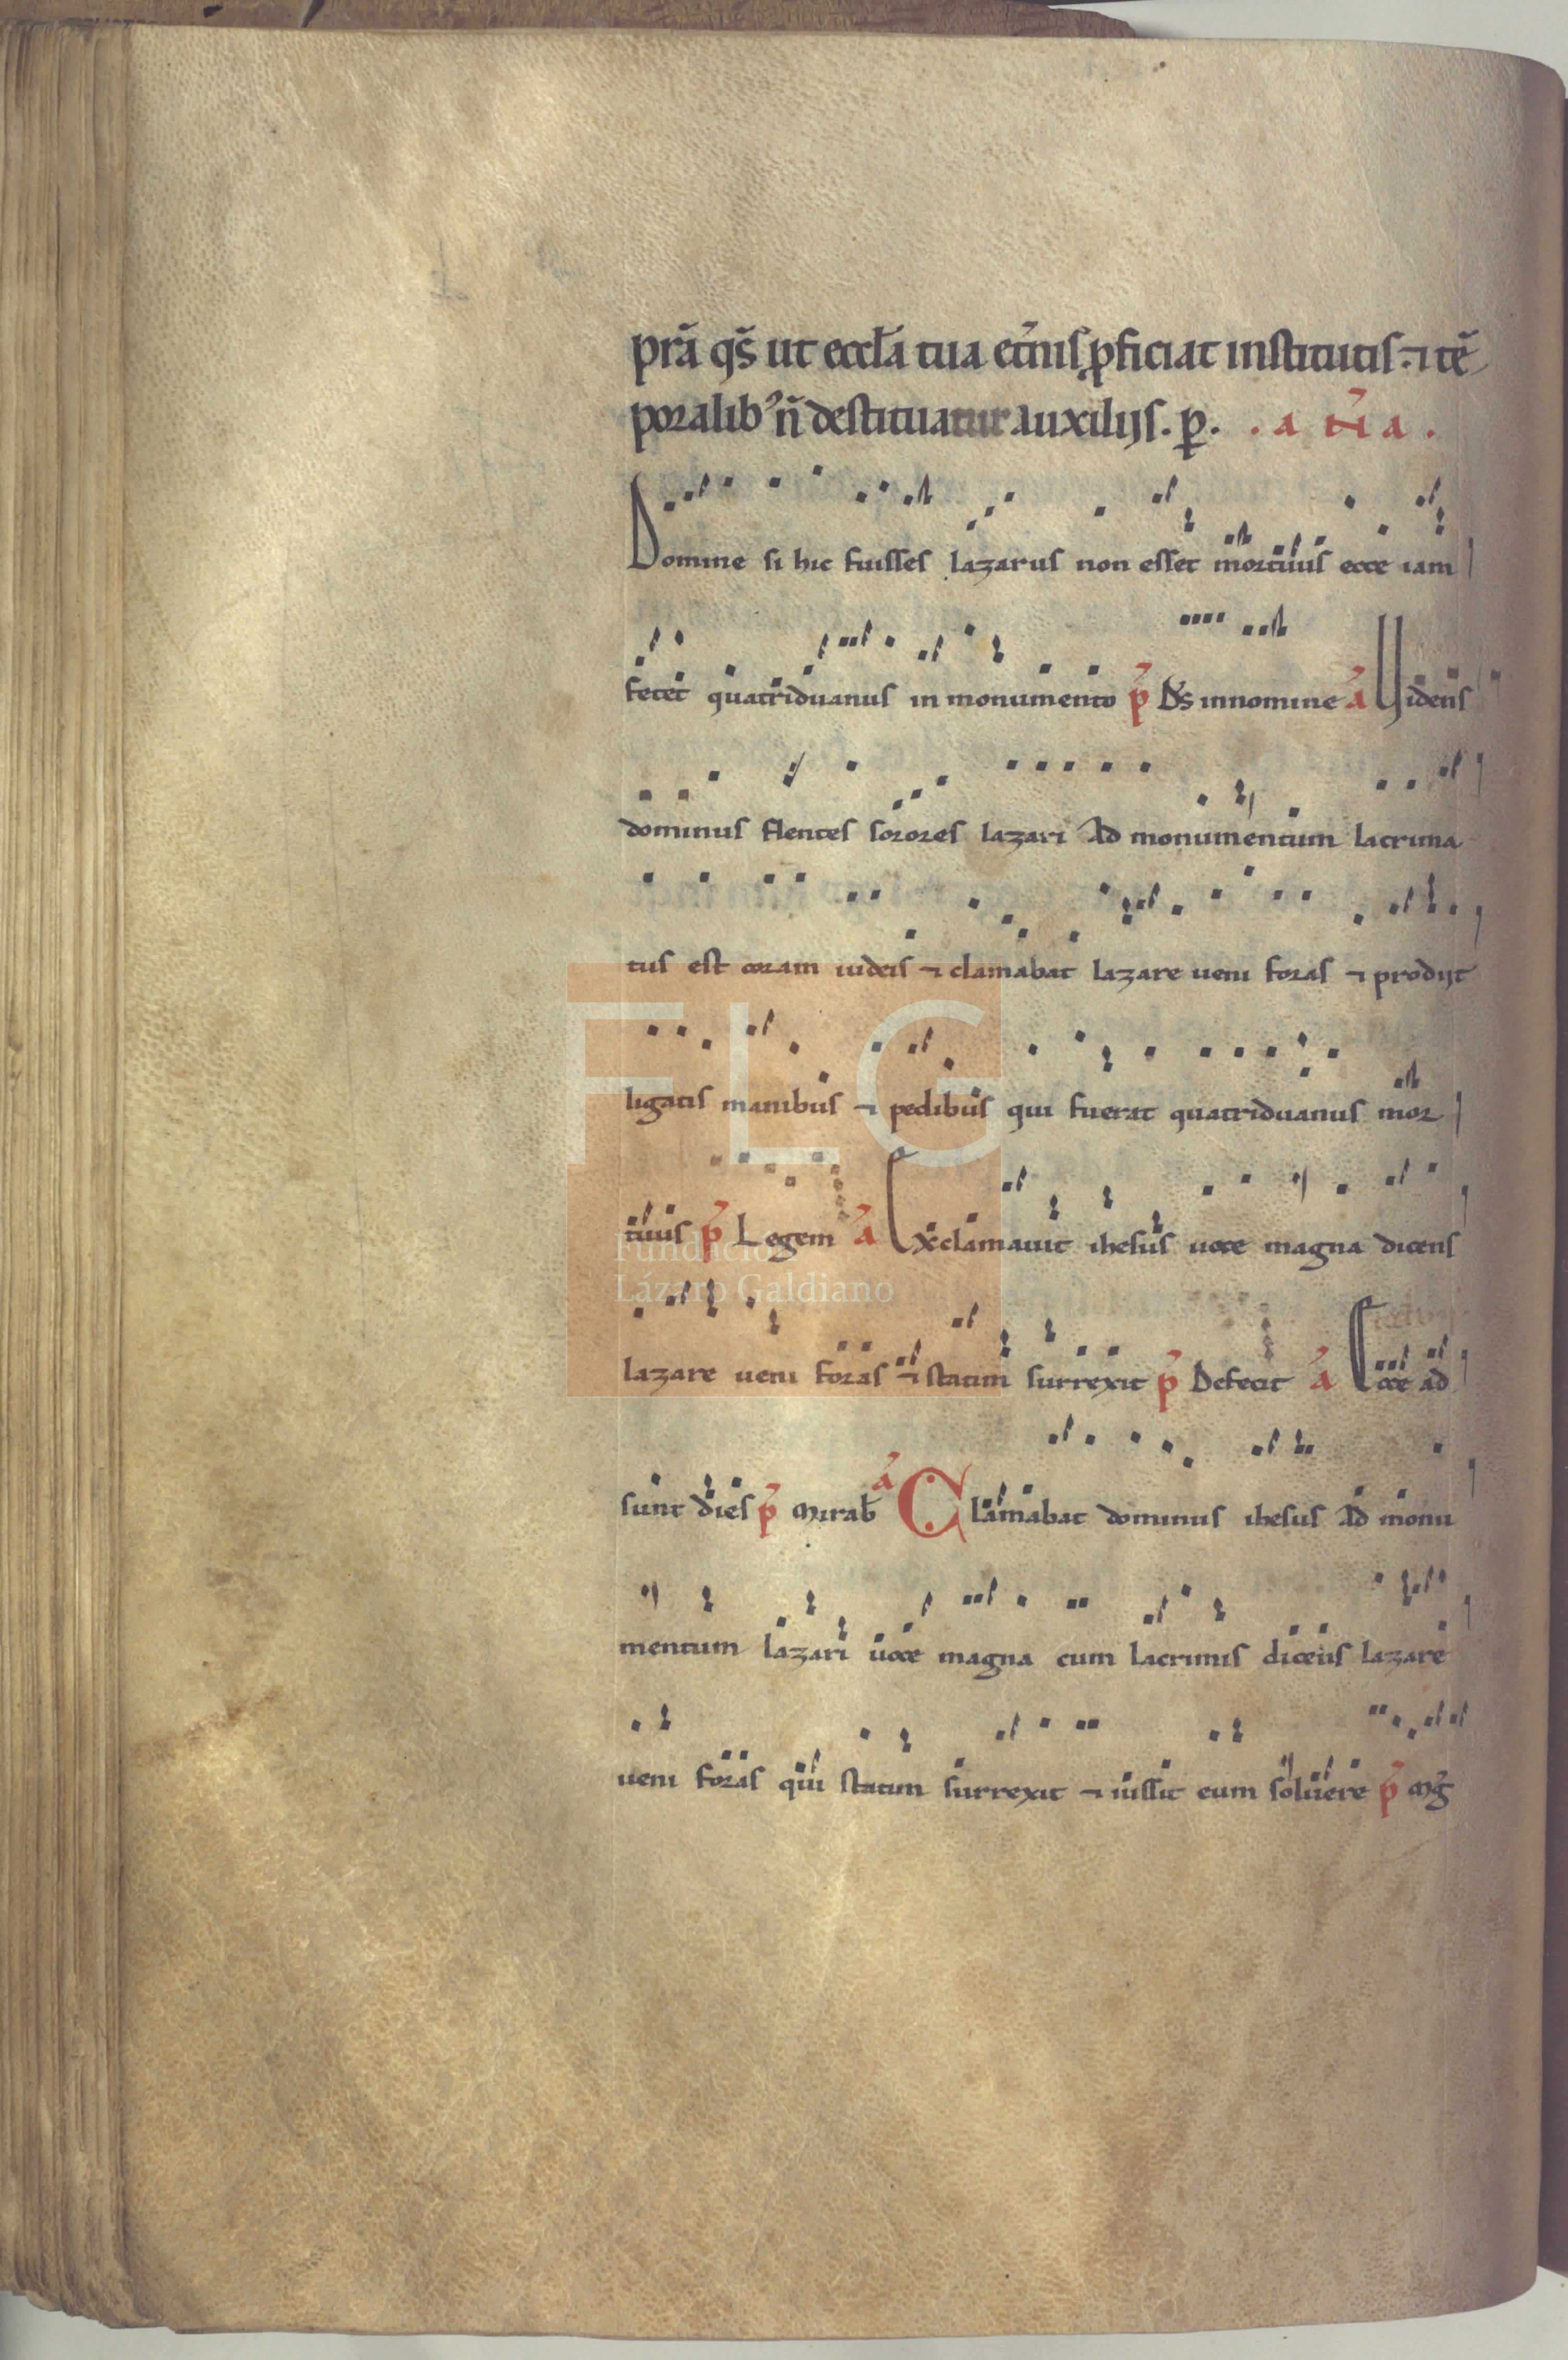 p̄rā q̄s ut eccl̄a tua et̄nis ꝓficiat institutis. ⁊ tē
poralibꝰ n̄ destituatur auxilijs. ꝑ. . a n̄ a .
Domine si hic fuisses lazarus non esset mortuus ecce iam
fetet quatriduanus in monumento p̄ D̄s innomine ā Videns
dominus flentes sorores lazari Ad monumentum lacrima
tus est coram iudeis ⁊ clamabat lazare ueni foras ⁊ prodijt
ligatis manibus ⁊ pedibus qui fuerat quatriduanus mor
tuus p̄ Legem ā Exclamauit ihesus uoce magna dicens
lazare ueni foras ⁊ statim surrexit p̄ Defecit ā Ecce ad
sunt dies p̄ Mirab̄ ā Clamabat dominus ihesus Ad monu
mentum lazari uoce magna cum lacrimis dicens lazare
ueni foras qui statim surrexit ⁊ iussit eum soluere p̄ Mḡ
FLG
Fundación
Lázaro Galdiano